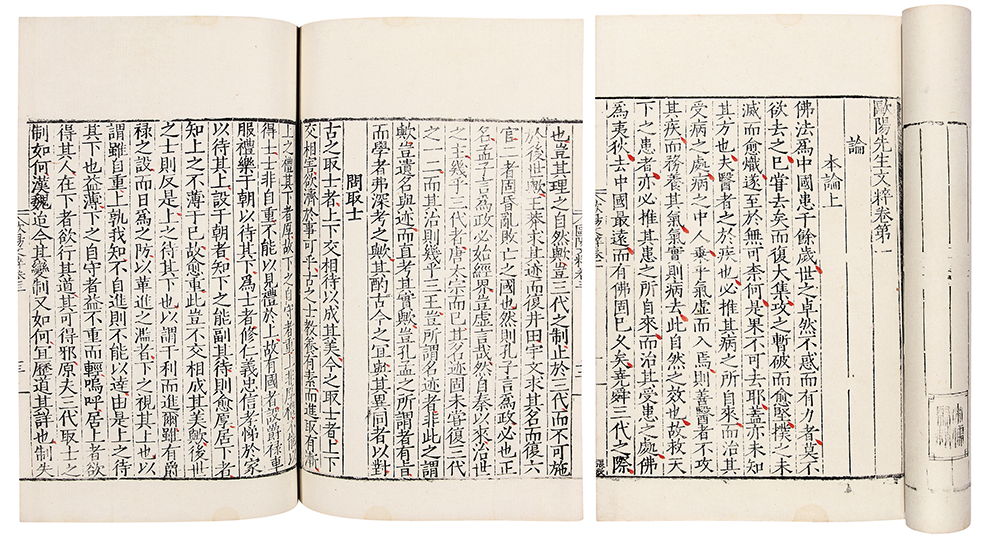 歐陽先生文粹卷第一
論
本論上
佛法為中國患千餘歲世之卓然不惑而有力者莫不
欲去之已甞去矣而復大集攻之暫破而愈堅撲之未
滅而愈熾遂至於無可柰何是果不可去耶蓋亦未知
其方也夫醫者之於疾也必推其病之所自來而治其
受病之處病之中人乗乎氣虛而入焉則善醫者不攻
其疾而務養其氣氣實則病去此自然之效也故救天
下之患者亦必推其患之所自來而治其受患之處佛
為夷狄去中國最逺而有佛固已乆矣堯舜三代之際
也豈其理之自然歟豈三代之制止於三代而不可施
於後世歟王莽求其迹而復井田宇文求其名而復六
官二者固昬亂敗亡之國也然則孔子言為政必也正
名孟子言為政必始經界豈虛言哉然自秦以來治世
之主幾乎三代者唐太宗而已其名迹固未甞復三代
之一二而其治則幾乎三王豈所謂名迹者非此之謂
歟豈遺名與迹而直考其實歟豈孔孟之所謂者有旨
而學者弗深考之歟其酌古今之宜與其異同者以對
問取士
古之取士者上下交相待以成其美今之取士者上下
交相害欲濟於事可乎古之士教養有素而進取有漸
上之禮其下者厚故下之自守者重上非厚禮不能以
得士士非自重不能以見禮於上故有國者設爵禄車
服禮樂于朝以待其下為士者修仁義忠信孝悌於家
以待其上設于朝者知下之能副其待則愈厚居下者
知上之不薄于已故愈重此豈不交相成其美歟後世
之士則反是上之待其下也以謂干利而進爾雖有爵
禄之設而日為之防以革進之濫者下之視其上也以
謂雖自重上孰我知不自進則不能以逹由是上之待
其下也益薄下之自守者益不重而輕嗚呼居上者欲
得其人在下者欲行其道其可得邪原夫三代取士之
制如何漢魏迨今其變制又如何宜歷道其詳也制失